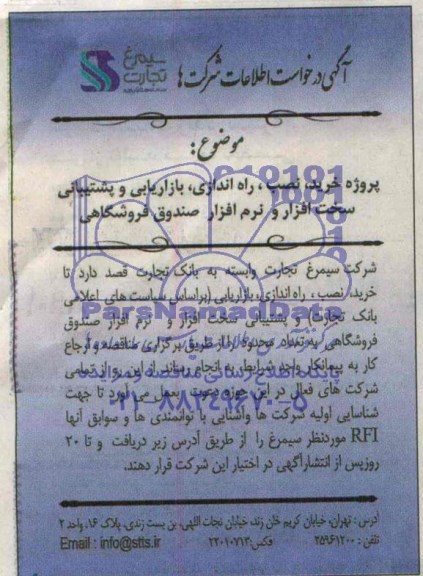 سیمرغ
تجارت
آگهی درخواست اطلاعات شرکت ها
موضوع:
پروژه خرید، نصب، راه اندازی، بازاریابی و پشتیبانی
سخت افزار و نرم افزار صندوق فروشگاهی
شرکت سیمرغ تجارت وابسته به بانک تجارت قصد دارد تا
خرید، نصب، راه اندازی، بازاریابی (براساس سیاست های اعلامی
بانک تجارت) و پشتیبانی سخت افزار و نرم افزار صندوق
فروشگاهی به تعداد محدود را از طریق برگزاری مناقصه و ارجاع
کار به پیمانکار واجد شرایط به انجام رساند. از این رو از تمامی
شرکت های فعال در این حوزه دعوت بعمل می آورد تا جهت
شناسایی اولیه شرکت ها وآشنایی با توانمندی ها و سوابق آنها
RFI موردنظر سیمرغ را از طریق آدرس زیر دریافت و تا ۲۰
روزپس از انتشارآگهی در اختیار این شرکت قرار دهند.
آدرس: تهران، خیابان کریم خان زند، خیابان نجات اللهی، بن بست زندی، پلاک ۱۶، واحد ۲
تلفن: ۲۵۹۶۱۲۰۰ فکس: ۲۲۰۱۰۷۱۳ Email : info@stts.ir
ParsNamadData
۰۲۱-۸۸۳۴۹۶۷۰-۵